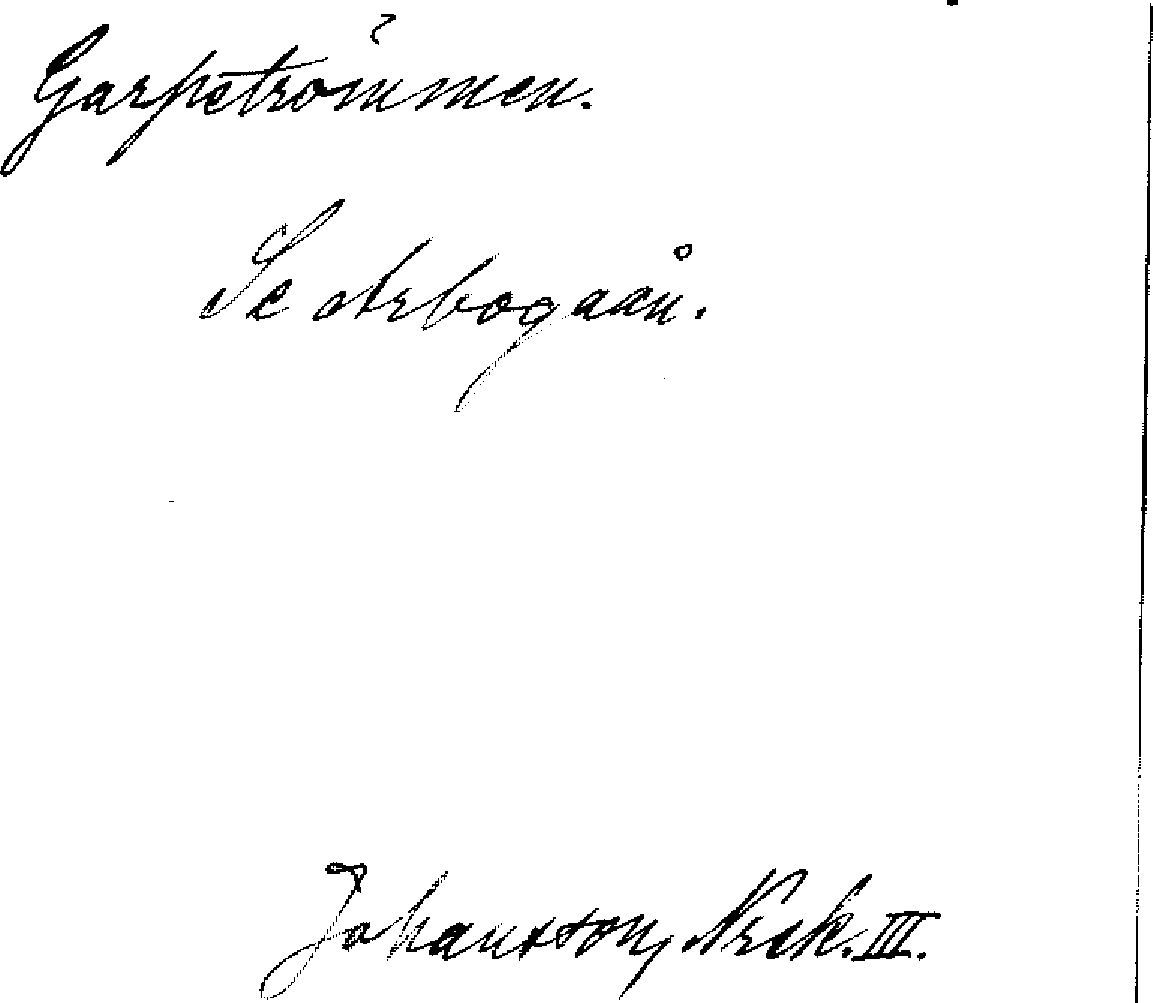 Garpströmmen.
Se Arbogaån.
Johansson, Nrck. III.